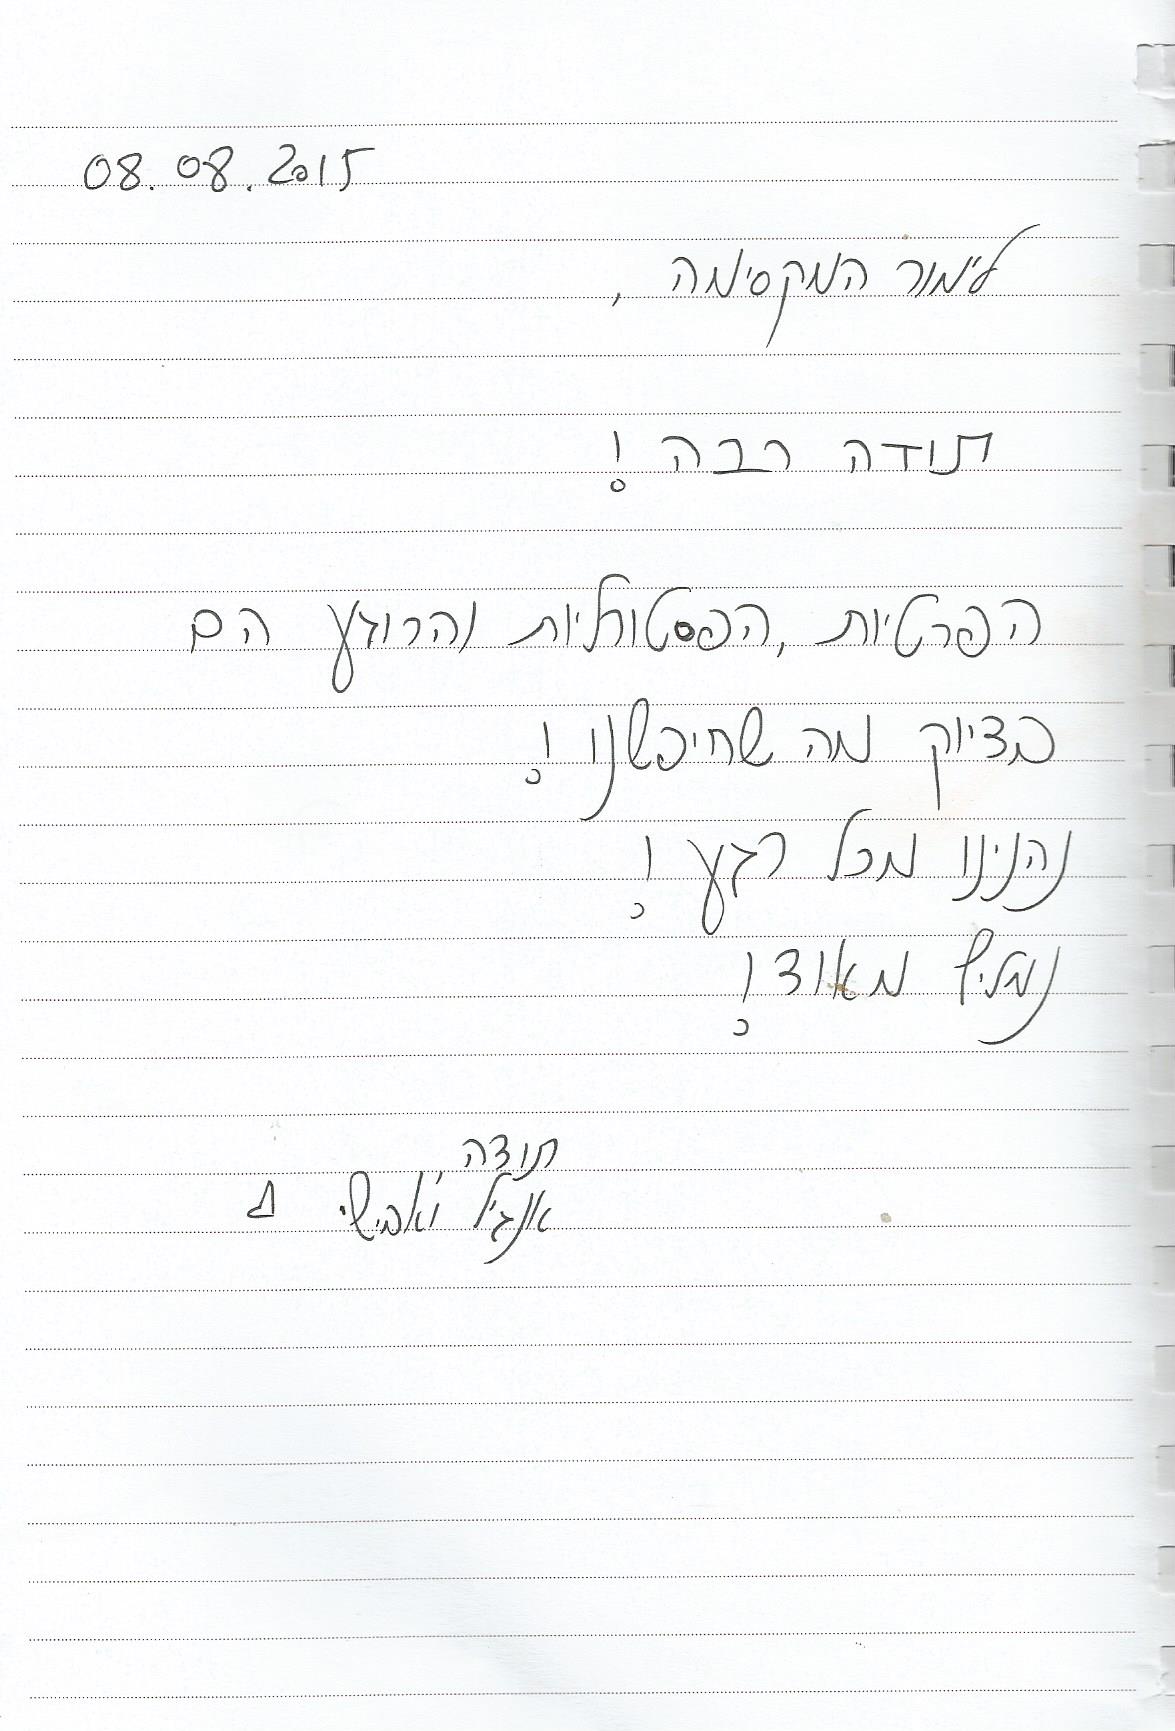 08.08.2015
לימור המקסימה,
תודה רבה!
הפרטיות, הפסטורליות והרוגע הם
בדיוק מה שחיפשנו!
נהנינו מכל רגע!
נמליץ מאוד!
תודה
אנג'ל ואבישי